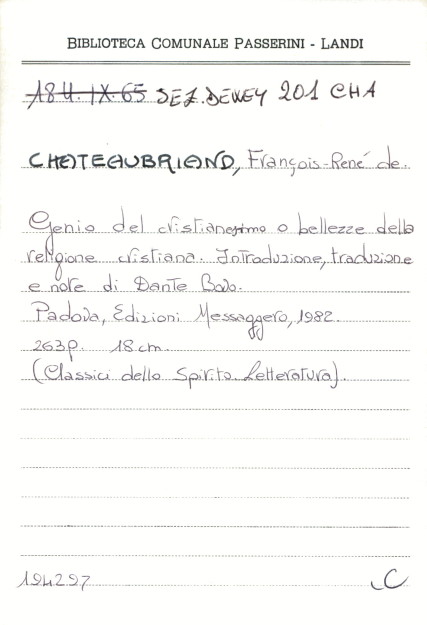 BIBLIOTECA COMUNALE PASSERINI - LANDI
18H.IX.65 SEZ.DEWEY 201 CHA
CHATEAUBRIAND, François-René de.
Genio del cristianesimo o bellezze della
religione cristiana. Introduzione, traduzione
e note di Dante Bovo.
Padova, Edizioni Messaggero, 1982.
263p. 18 cm.
(Classici dello Spirito. Letteratura).
194297 C